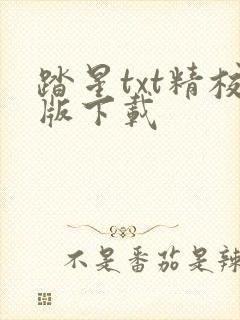 踏星txt精校
版下载
不是番茄是辣